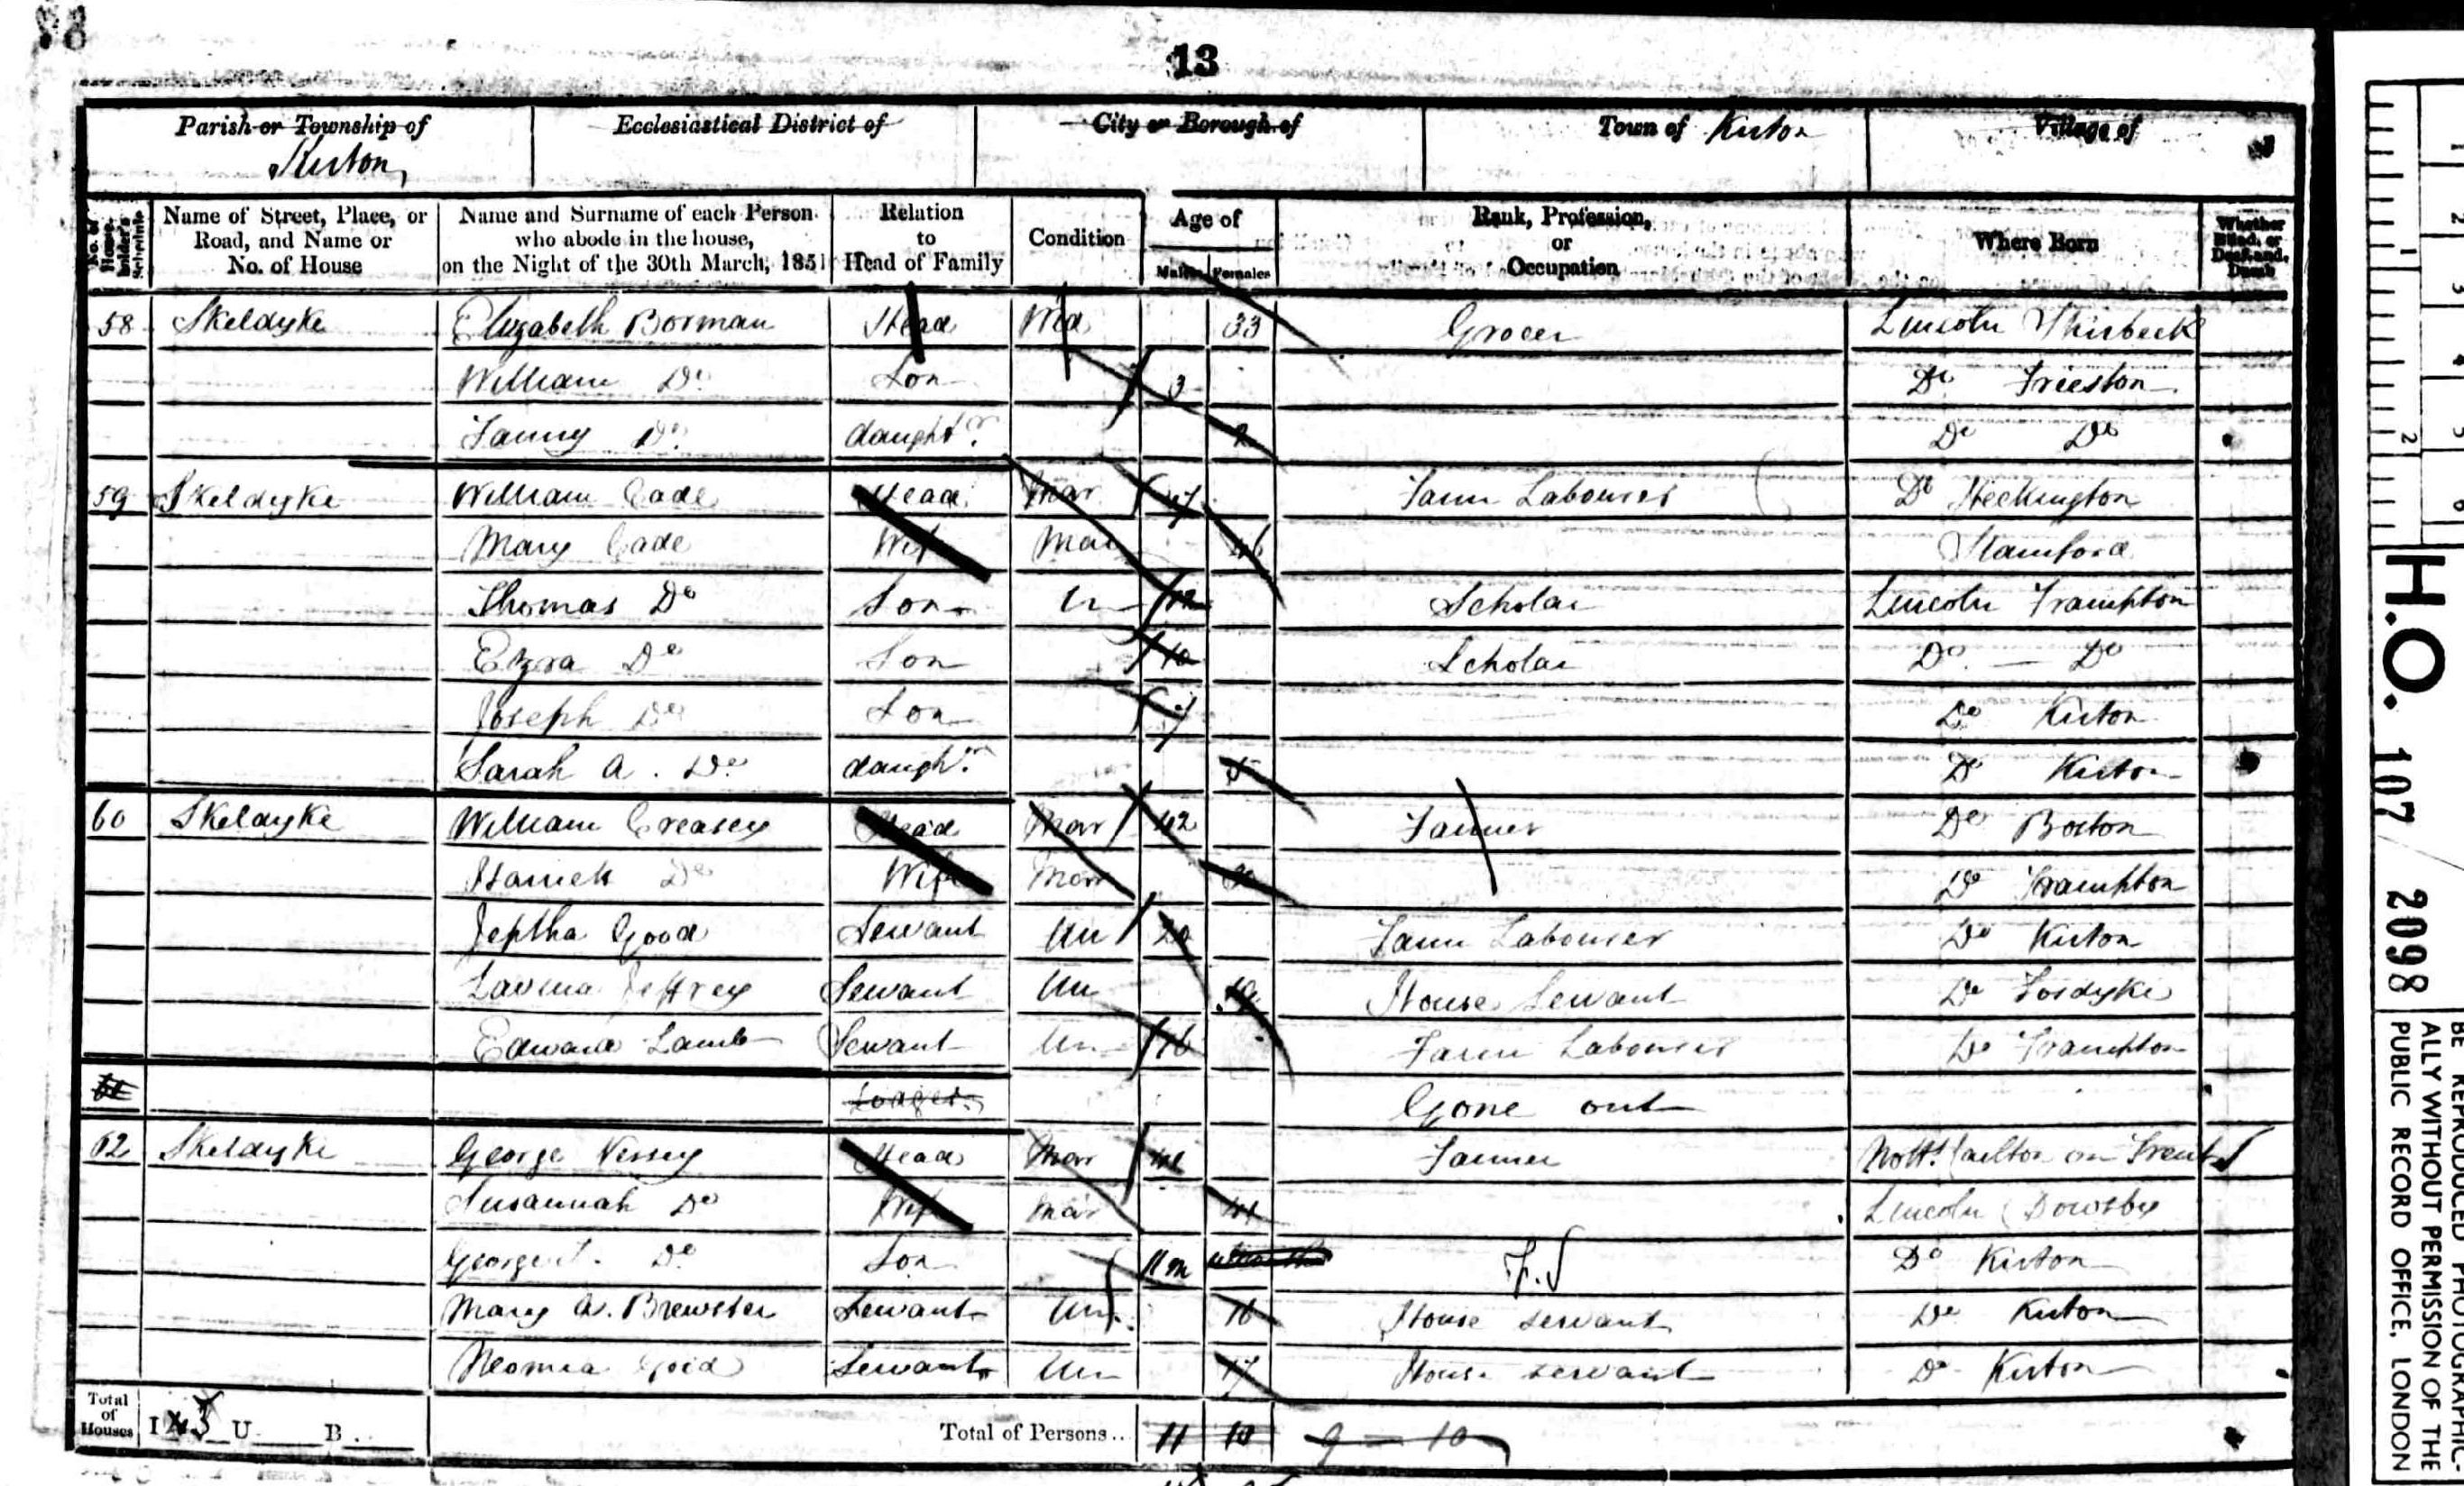 13
Parish or Township of Ecclesiastical District of City or Borough of Town of Kirton Village of
Kirton
No. of House-holder's Schedule Name of Street, Place, or Road, and Name or No. of House Name and Surname of each Person who abode in the house, on the Night of the 30th March, 1851 Relation to Head of Family Condition Age of Males Females Rank, Profession, or Occupation Where Born Whether Blind, or Deaf-and-Dumb
58 Skeldyke Elizabeth Borman Head Wid 33 Grocer Lincoln Skirbeck
William Do Son 3 Do Frieston
Fanny Do daughtr 2 Do Do
59 Skeldyke William Cade Head Mar 47 Farm Labourer Do Heckington
Mary Cade Wife Mar 46 Stamford
Thomas Do Son Un 12 Scholar Lincoln Frampton
Ezra Do Son 10 Scholar Do Do
Joseph Do Son 7 Do Kirton
Sarah A. Do daughr 5 Do Kirton
60 Skeldyke William Creasey Head Mar 42 Farmer Do Boston
Harriett Do Wife Mar Do Frampton
Jeptha Good Servant Un 20 Farm Labourer Do Kirton
Lavina Jeffrey Servant Un 19 House Servant Do Fosdyke
Edward Lamb Servant Un 16 Farm Labourer Do Frampton
61 Lodger Gone out
62 Skeldyke George Vessey Head Mar 41 Farmer Notts Carlton on Trent
Susannah Do Wife Mar 41 Lincoln Dowsby
George Do Son 11m Do Kirton
Mary A. Brewster Servant Un 16 House servant Do Kirton
Neomia Good Servant Un 17 House servant Do Kirton
Total of Houses I 3 U B Total of Persons.. 11 10 9 - 10
1 2 3 4 5 6
1 2
H.O. 107 / 2098
BE REPRODUCED PHOTOGRAPHIC-
ALLY WITHOUT PERMISSION OF THE
PUBLIC RECORD OFFICE, LONDON